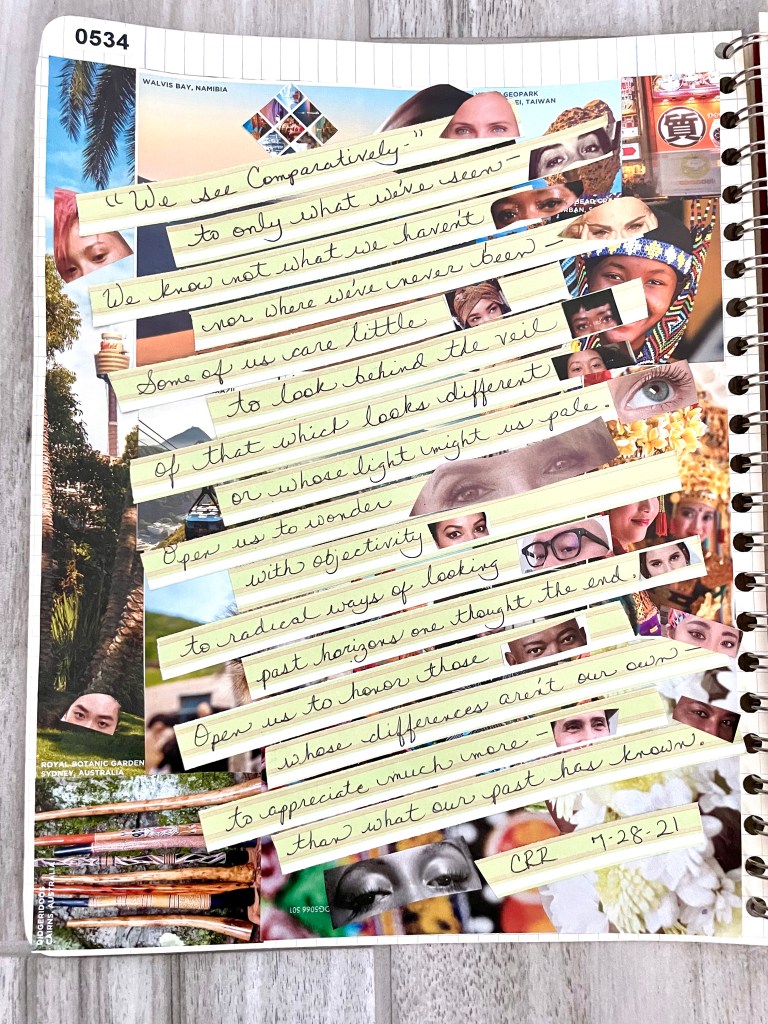 0534
WALVIS BAY, NAMIBIA
GEOPARK
EI, TAIWAN
質
"We see Comparatively-"
to only what we've seen—
BEAD
RBAN, S
We know not what we haven't
nor where we've never been—
Some of us care little
to look behind the veil
of that which looks different
or whose light might us pale.
Open us to wonder
with objectivity
to radical ways of looking
past horizons one thought the end.
Open us to honor those
whose differences aren't our own—
to appreciate much more—
than what our past has known.
ROYAL BOTANIC GARDEN
SYDNEY, AUSTRALIA
CRR 7-28-21
DIDGERIDOOS
CAIRNS, AUSTRALIA
DG5066 501